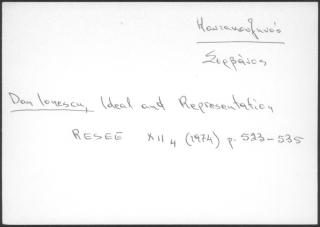 Καντακουζηνός
Σερβάνος
Dan Ionescu, Ideal and Representation
RESEE XII 4 (1974) p. 523-535